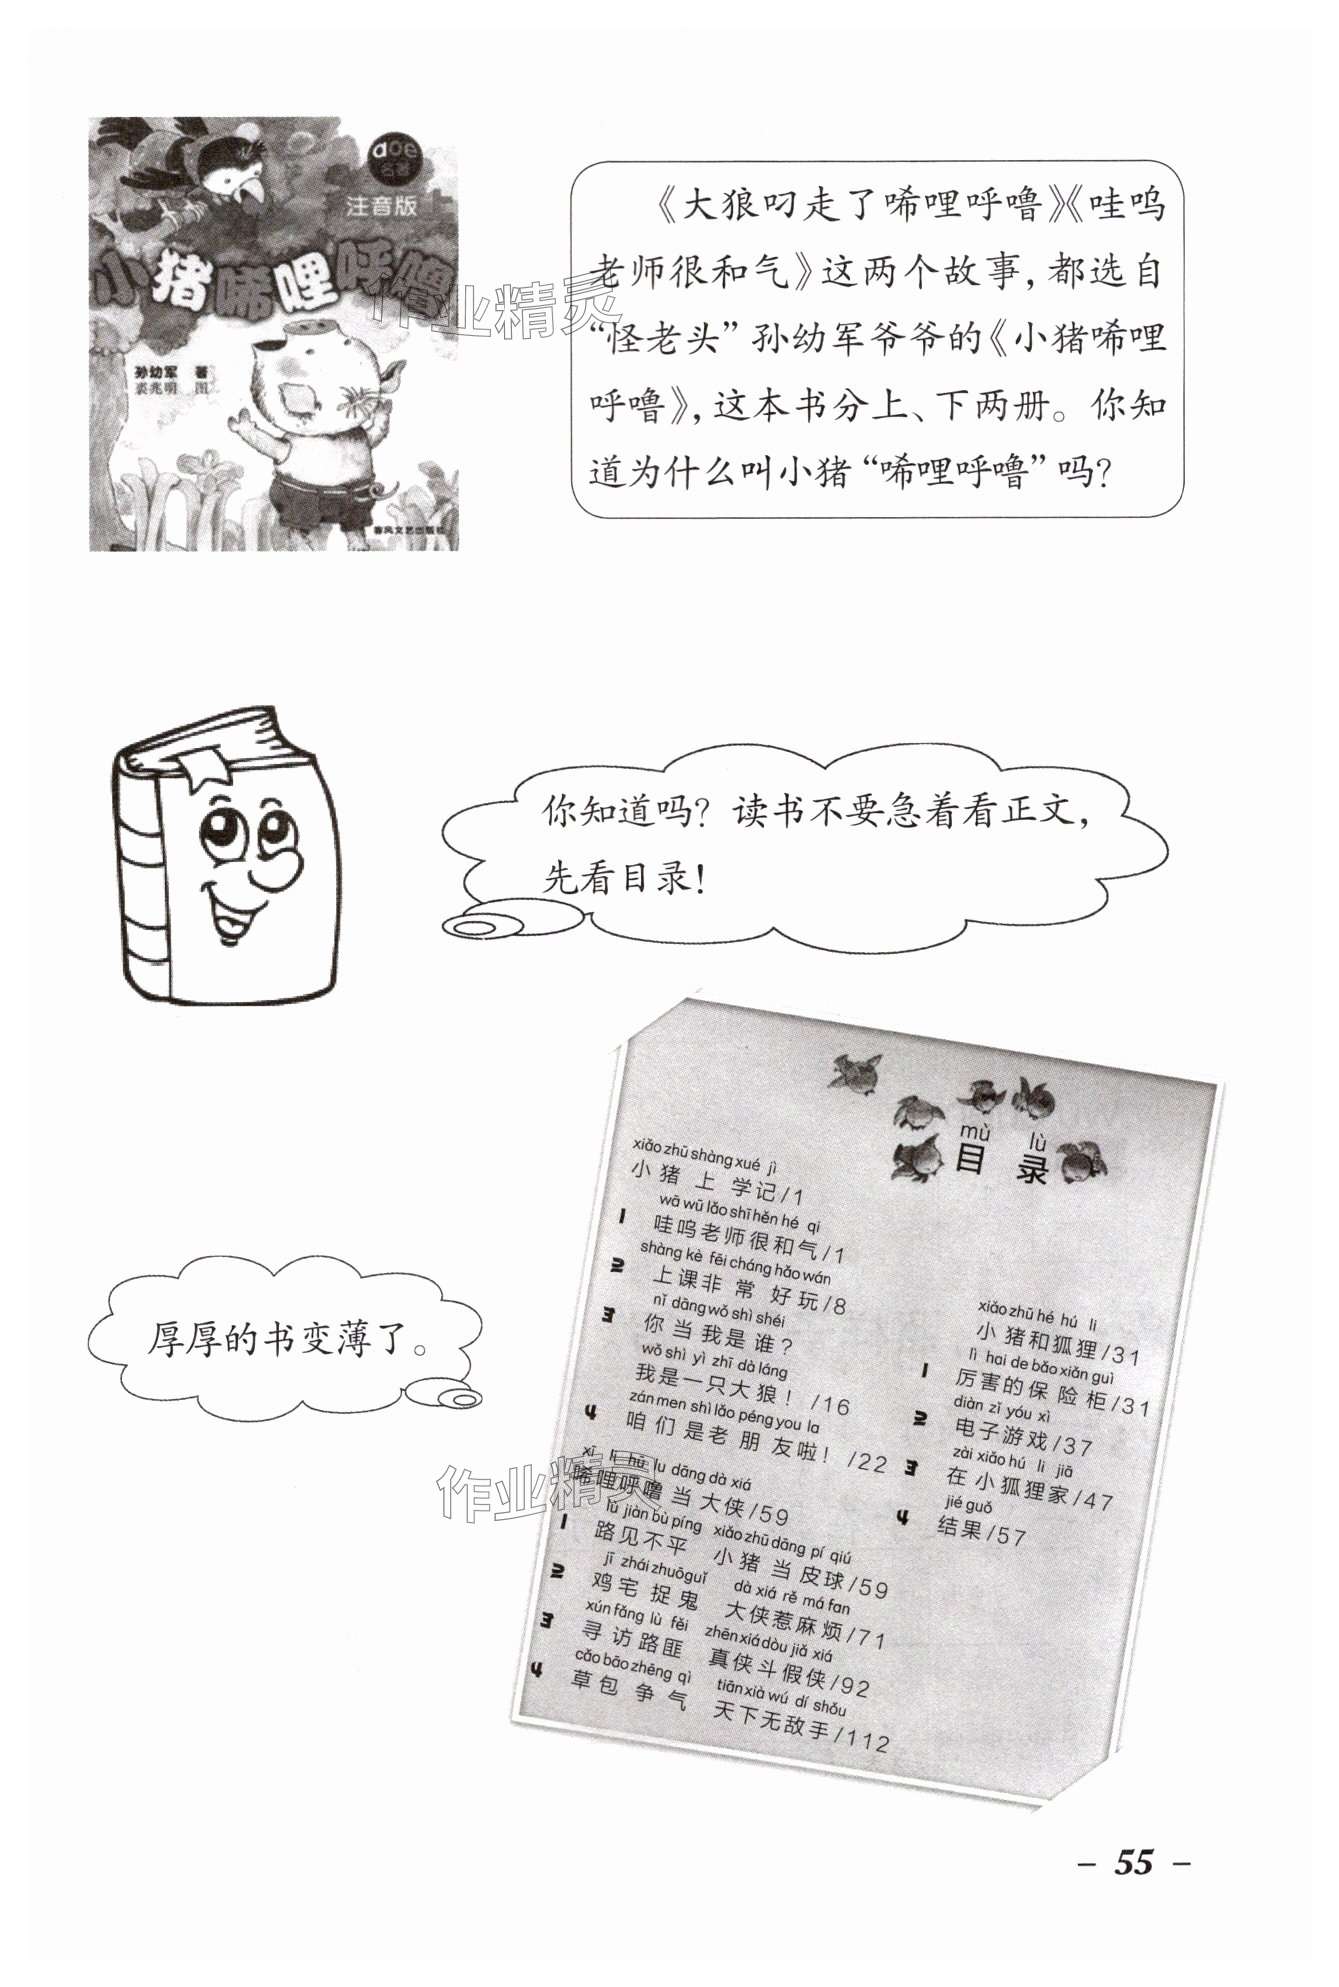 aoe
名著
注音版
小猪唏哩呼噜
孙幼军 著
裘兆明 图
春风文艺出版社
《大狼叼走了唏哩呼噜》《哇呜
老师很和气》这两个故事，都选自
“怪老头”孙幼军爷爷的《小猪唏哩
呼噜》，这本书分上、下两册。你知
道为什么叫小猪“唏哩呼噜”吗？
你知道吗？读书不要急着看正文，
先看目录！
厚厚的书变薄了。
mù lù
目 录
xiǎo zhū shàng xué jì
小猪上学记/1
wā wū lǎo shī hěn hé qi
1 哇呜老师很和气/1
shàng kè fēi cháng hǎo wán
2 上课非常好玩/8
nǐ dāng wǒ shì shéi
3 你当我是谁？
wǒ shì yì zhī dà láng
我是一只大狼！/16
zán men shì lǎo péng you la
4 咱们是老朋友啦！/22
xī li hū lu dāng dà xiá
唏哩呼噜当大侠/59
lù jiàn bù píng xiǎo zhū dāng pí qiú
1 路见不平 小猪当皮球/59
jī zhái zhuō guǐ dà xiá rě má fan
2 鸡宅捉鬼 大侠惹麻烦/71
xún fǎng lù fěi zhēn xiá dòu jiǎ xiá
3 寻访路匪 真侠斗假侠/92
cǎo bāo zhēng qì tiān xià wú dí shǒu
4 草包争气 天下无敌手/112
xiǎo zhū hé hú li
小猪和狐狸/31
lì hai de bǎo xiǎn guì
1 厉害的保险柜/31
diàn zǐ yóu xì
2 电子游戏/37
zài xiǎo hú li jiā
3 在小狐狸家/47
jié guǒ
4 结果/57
作业精灵
作业精灵
- 55 -